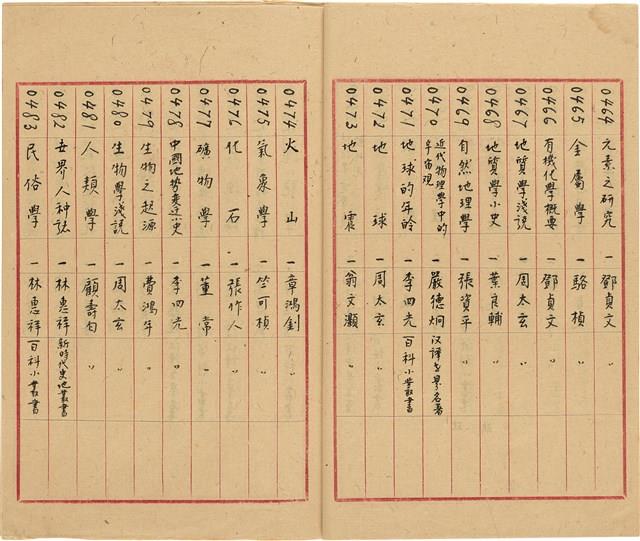 0464 元素之研究 一 鄧貞文 〃
0465 金屬學 一 駱楨 〃
0466 有機化學概要 一 鄧貞文 〃
0467 地質學淺說 一 周太玄 〃
0468 地質學小史 一 葉良輔 〃
0469 自然地理學 一 張資平 〃
0470 近代物理學中的宇宙观 一 嚴德炯 汉譯世界名著
0471 地球的年龄 一 李四光 百科小叢書
0472 地球 一 周太玄 〃
0473 地震 一 翁文灝 〃
0474 火山 一 章鴻釗
0475 氣象學 一 竺可楨 〃
0476 化石 一 張作人 〃
0477 礦物學 一 董常 〃
0478 中國地勢変迁小史 一 李四光 〃
0479 生物之起源 一 費鴻年 〃
0480 生物學淺説 一 周太玄 〃
0481 人類學 一 顧壽白 〃
0482 世界人种誌 一 林惠祥 新時代史地叢書
0483 民俗學 一 林惠祥 百科小叢書